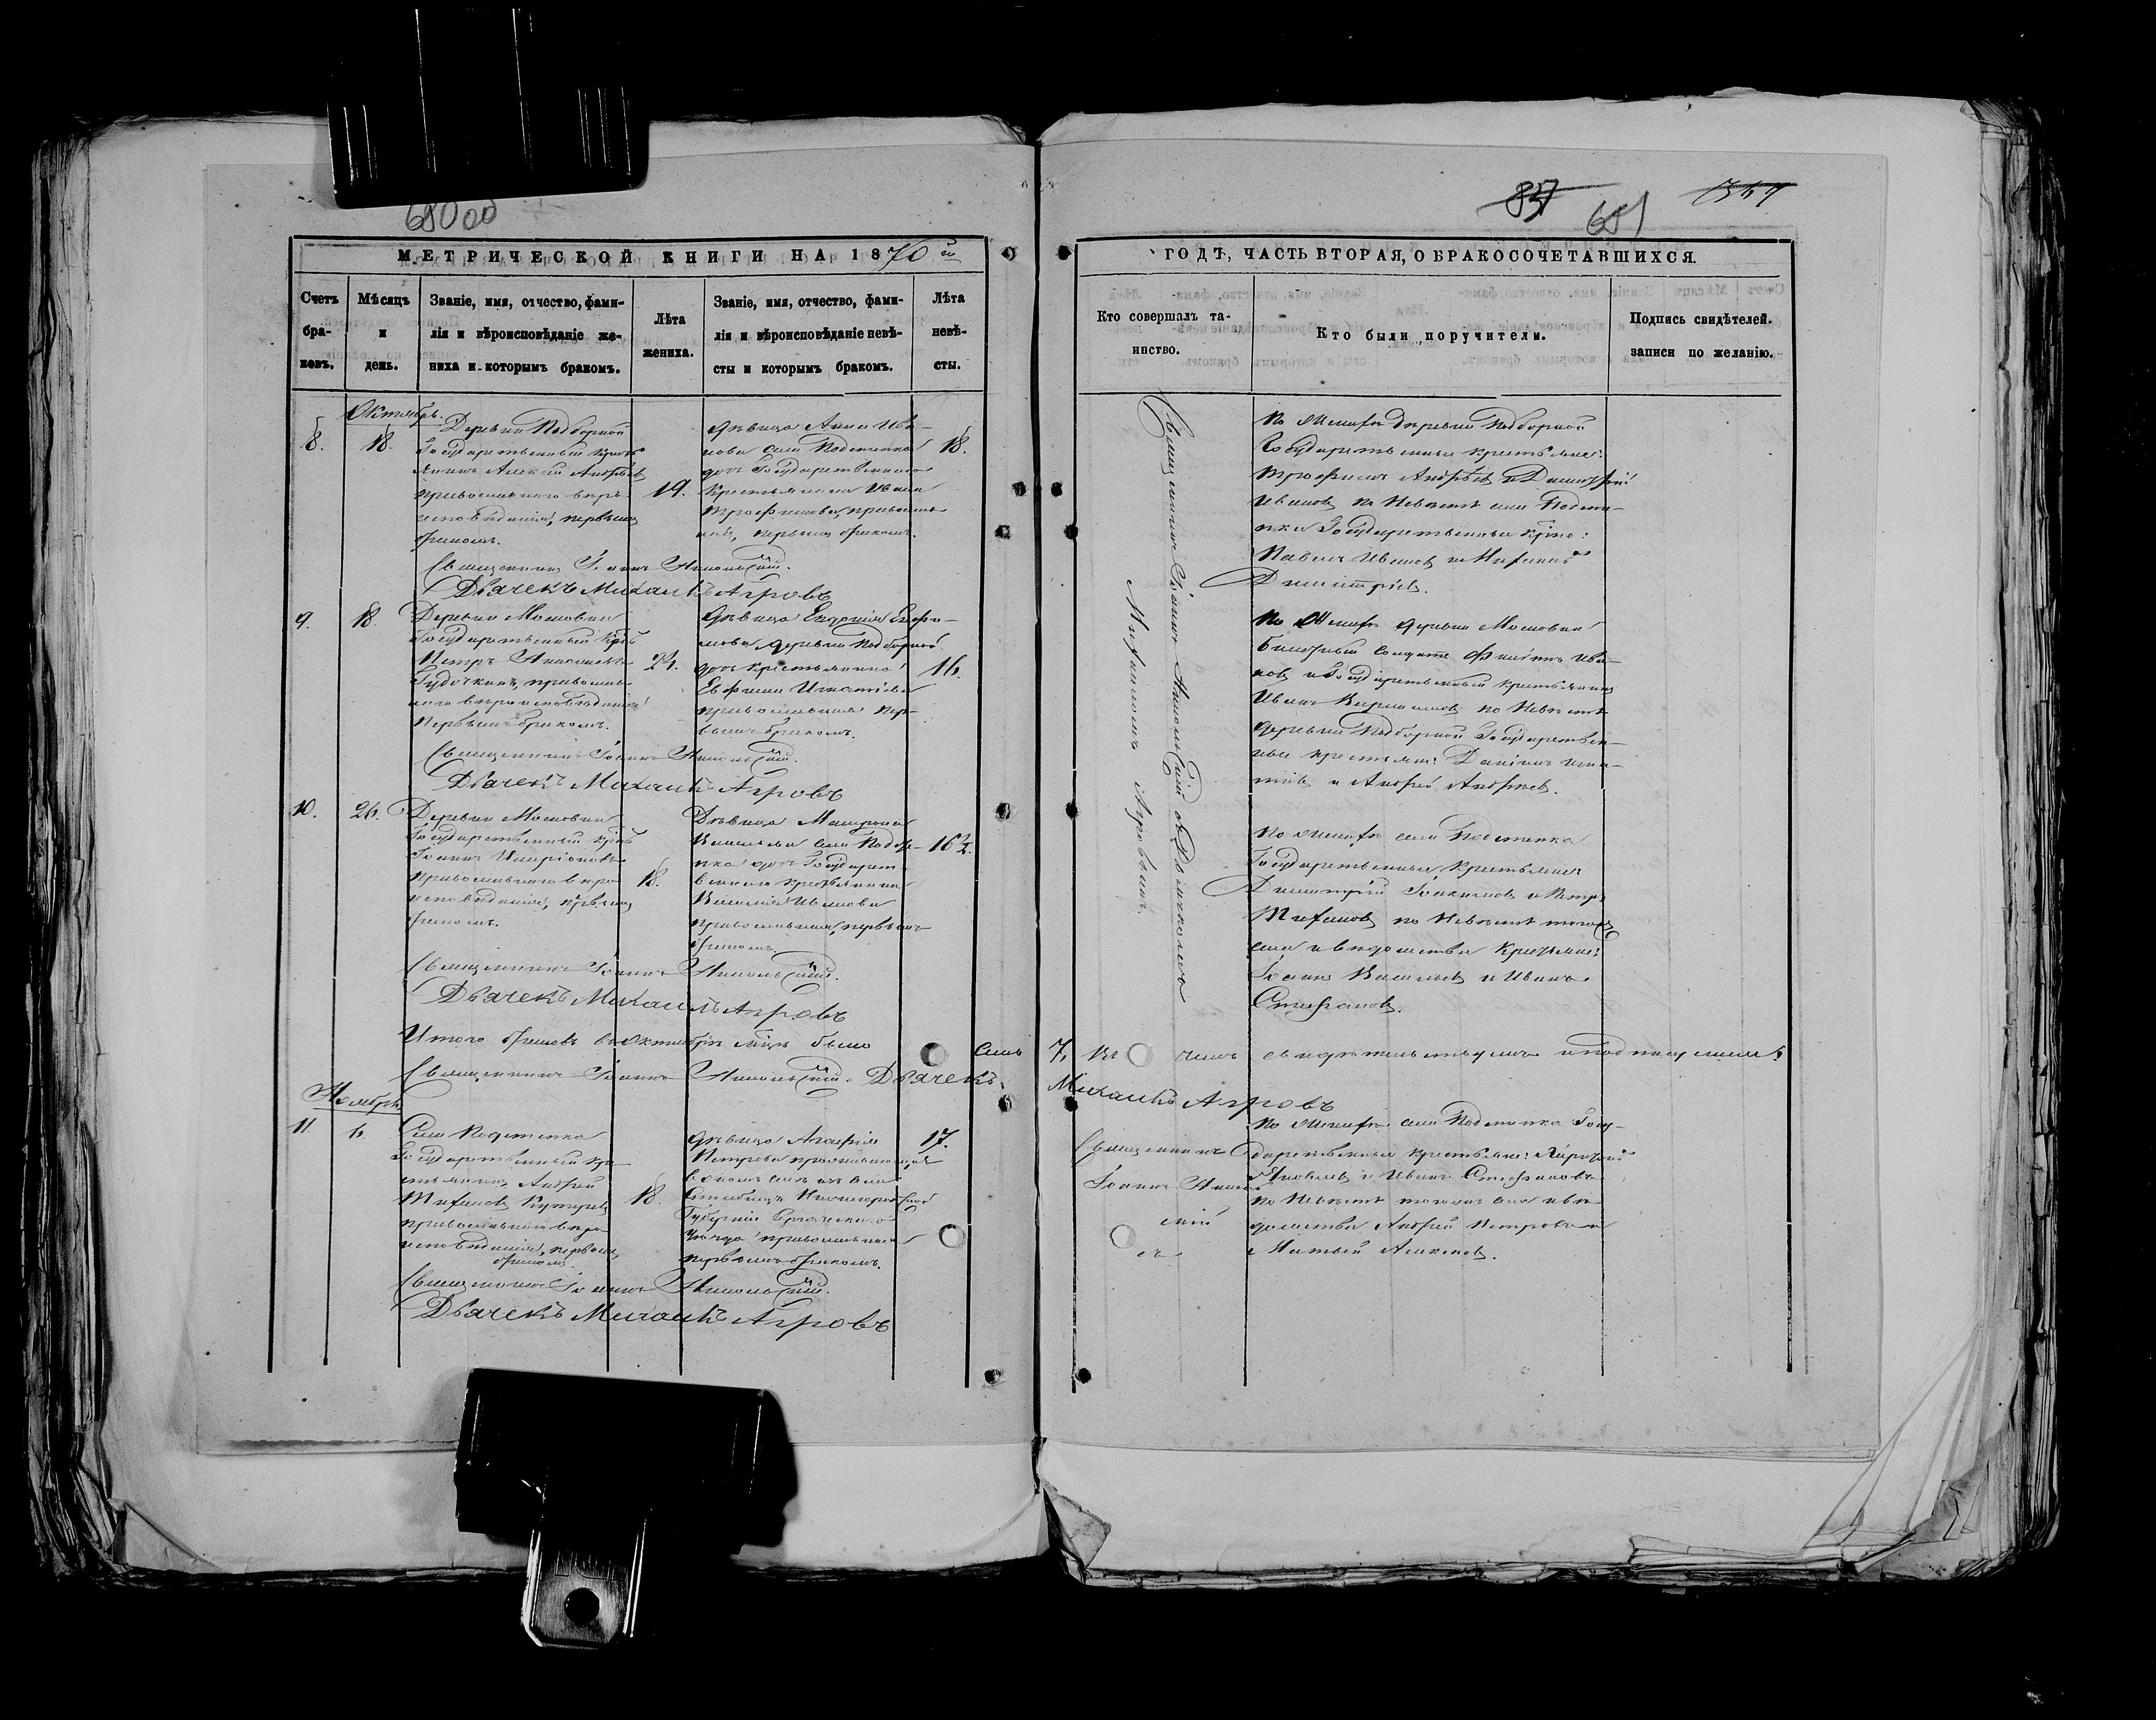 68000
МЕТРИЧЕСКОЙ КНИГИ НА 1870й
Счетъ бра-
ковъ.
Мѣсяцъ
и
день.
Званіе, имя, отчество, фами-
лія и вѣроисповѣданіе же-
ниха и которымъ бракомъ.
Лѣта
жениха.
Званіе, имя, отчество, фами-
лія и вѣроисповѣданіе невѣ-
сты и которымъ бракомъ.
Лѣта
невѣ-
сты.
Октябрь.
8.
18.
Деревни Подборной
Государственный крес
янинъ Алексѣй Андреев
православнаго вѣро
исповѣданія, первымъ
бракомъ.
19.
Дѣвица Анна Ива-
нова села Подстепка
дочь Государственнаго
Крестьянина Ивана
Трофимова, православ
ная, первымъ бракомъ.
18.
Священникъ Іоаннъ Никольскій.
Дьячекъ Михаилъ Агровъ
9.
18.
Деревни Московки
Государственный крес
Петръ
православ
наго вѣроисповѣданія
первымъ бракомъ.
24.
Дѣвица Евдокія Евфи-
мова деревни Подборной
дочь крестьянина
Евфима Игнатіева
православная пер-
вымъ бракомъ.
16.
Священникъ Іоаннъ Никольскій.
Дьячекъ Михаилъ Агровъ
10.
26.
Деревни Московки
Государственный крес
Іоаннъ Иларіоновъ
православнаго вѣро
исповѣданія, первымъ
бракомъ.
18.
Дѣвица Матрона
Васильева села Подсте-
пка дочь Государст
веннаго крестьянина
Василія Иванова
православная, первымъ
бракомъ.
16½.
Священникъ Іоаннъ Никольскій.
Дьячекъ Михаилъ Агровъ
Итого браковъ въ Октябрѣ мѣсяцѣ было семь
Священникъ Іоаннъ Никольскій. Дьячекъ
Ноябрь
11.
6.
Села Подстепка
Государственный кре
стьянинъ Андрей
православнаго вѣро
исповѣданія, первымъ
бракомъ.
18.
Дѣвица Агафія
Петрова проживающая
въ ономъ селѣ изъ села
Губерніи
уѣзда православная
первымъ бракомъ.
17.
Священникъ Іоаннъ Никольскій.
Дьячекъ Михаилъ Агровъ
837
651
ГОДЪ, ЧАСТЬ ВТОРАЯ, О БРАКОСОЧЕТАВШИХСЯ.
Кто совершалъ та-
инство.
Кто были поручители.
Подпись свидѣтелей.
записи по желанію.
Священникъ Іоаннъ Никольскій съ Дьячкомъ
Михаиломъ Агровымъ.
По женихѣ деревни Подборной
Государственные крестьяне:
Трофимъ Андреевъ и Димитрій
Ивановъ по Невѣстѣ села Подсте-
пка Государственные крес:
Павелъ Ивановъ и
Димитріевъ.
По Женихѣ деревни Московки
солдатъ Филиппъ Ива-
новъ и Государственный крестьянинъ
Иванъ по Невѣстѣ
деревни Подборной Государствен-
ные крестьяне: Даніилъ Игна-
тіевъ и Андрей Андреевъ.
По женихѣ села Подстепка
Государственные Крестьяне
Димитрій и Петръ
по Невѣстѣ того же
села и вѣдомства крестьяне:
Іоаннъ Васильевъ и Иванъ
Стефановъ.
7, въ чемъ свидѣтельствуемъ и подписуемся:
Михаилъ Агровъ
Священникъ
Іоаннъ Николь
скій
съ
По женихѣ села Подстепка Госу-
дарственные крестьяне:
Яковлевъ и Иванъ Стефановъ
по Невѣстѣ того же села и вѣ
домства Андрей Петровъ и